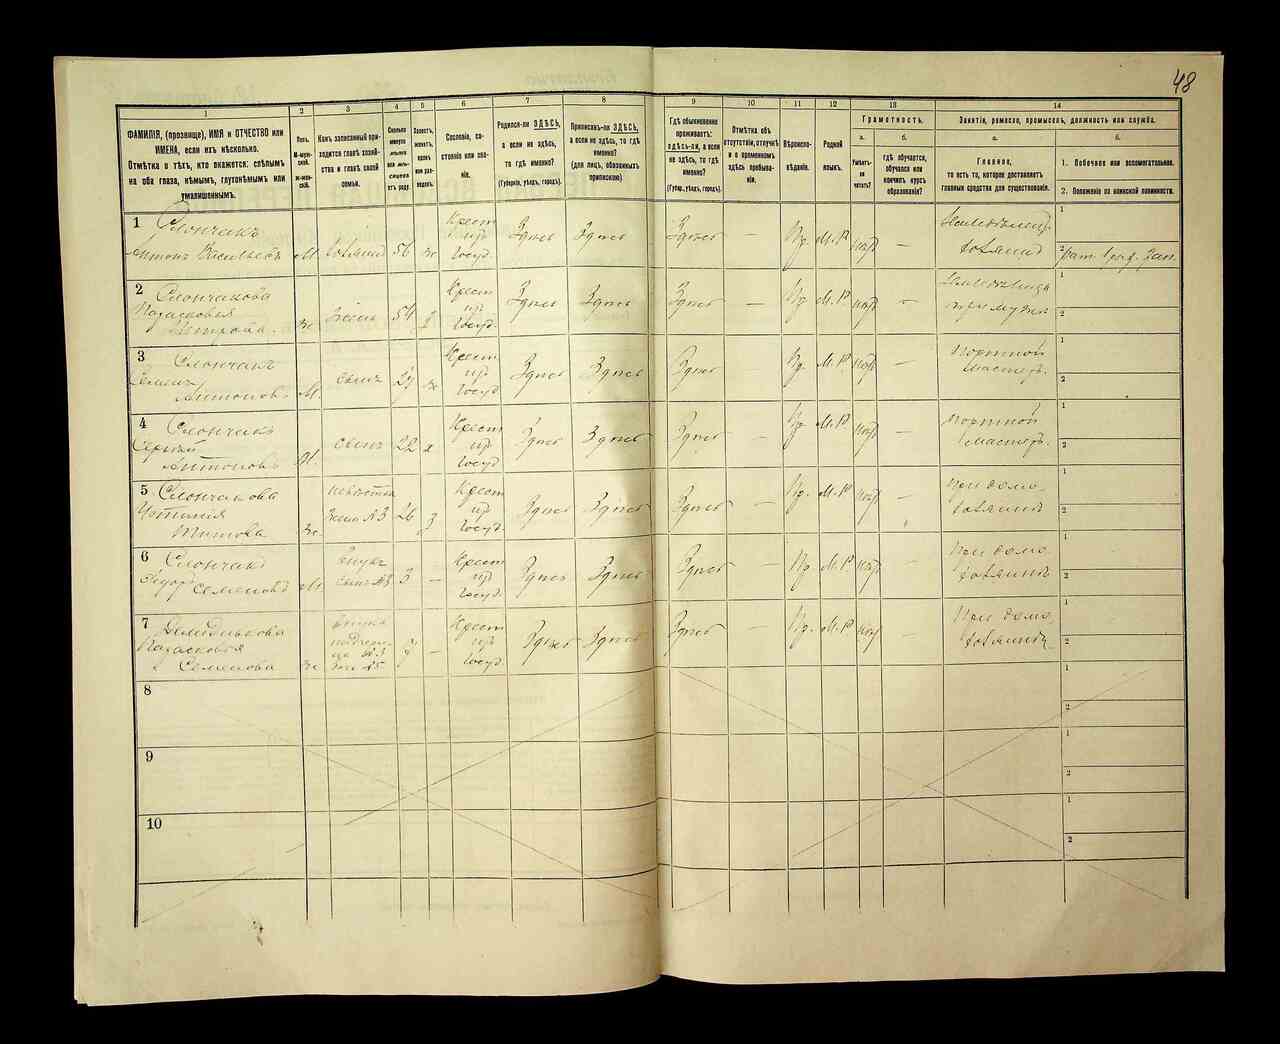 48
1
2
3
4
5
6
7
8
9
10
11
12
13
14
ФАМИЛІЯ, (прозвище), ИМЯ и ОТЧЕСТВО или
ИМЕНА, если ихъ нѣсколько.
Отмѣтка о тѣхъ, кто окажется: слѣпымъ
на оба глаза, нѣмымъ, глухонѣмымъ или
умалишеннымъ.
Полъ.
М-муж-
ской.
ж-жен-
скій.
Какъ записанный при-
ходится главѣ хозяй-
ства и главѣ своей
семьи.
Сколько
минуло
лѣтъ
или мѣ-
сяцевъ
отъ роду.
Холостъ,
женатъ,
вдовъ
или раз-
веденъ.
Сословіе, со-
стояніе или зва-
ніе.
Родился-ли ЗДѢСЬ,
а если не здѣсь,
то гдѣ именно?
(Губернія, уѣздъ, городъ).
Приписанъ-ли ЗДѢСЬ,
а если не здѣсь, то гдѣ
именно?
(для лицъ, обязанныхъ
припискою)
Гдѣ обыкновенно
проживаетъ:
здѣсь-ли, а если
не здѣсь, то гдѣ
именно?
(Губер., уѣздъ, городъ).
Отмѣтка объ
отсутствіи, отлучкѣ
и о временномъ
здѣсь пребыва-
ніи.
Вѣроиспо-
вѣданіе.
Родной
языкъ.
Грамотность.
а.
Умѣетъ-
ли
читать?
б.
гдѣ обучается,
обучался или
кончилъ курсъ
образованія?
Занятіе, ремесло, промыселъ, должность или служба.
а.
Главное,
то есть то, которое доставляетъ
главныя средства для существованія.
б.
1. Побочное или вспомогательное.
2. Положеніе по воинской повинности.
1 Слончакъ
Антонъ Васильевъ М. хозяинъ 56 ж Крест. изъ Госуд. Здѣсь Здѣсь Здѣсь — Пр. М.Р — Земледѣлецъ хозяинъ
1
2
2 Слончакова
Парасковья
ж. жена 54 Крест. изъ Госуд. Здѣсь Здѣсь Здѣсь — Пр М.Р — при мужѣ
1
2
3 Слончакъ
Семенъ
Антоновъ М. сынъ 27 ж Крест. изъ Госуд. Здѣсь Здѣсь Здѣсь — Пр. М.Р — портной мастеръ.
1
2
4 Слончакъ
Сергѣй
Антоновъ М. сынъ 22 Крест. изъ Госуд. Здѣсь Здѣсь Здѣсь — Пр М.Р — портной мастеръ.
1
2
5 Слончакова
Титова ж. невѣстка жена №3 26 Крест. изъ Госуд. Здѣсь Здѣсь Здѣсь — Пр. М.Р — при домо- хозяинѣ
1
2
6 Слончакъ
Федоръ Семеновъ М. внукъ сынъ №3 3 — Крест. изъ Госуд. Здѣсь Здѣсь Здѣсь — Пр. М.Р — при домо- хозяинѣ
1
2
7
Парасковья
Семенова ж. внучка — Крест. изъ Госуд. Здѣсь Здѣсь Здѣсь — Пр. М.Р — При домо- хозяинѣ
1
2
8
1
2
9
1
2
10
1
2